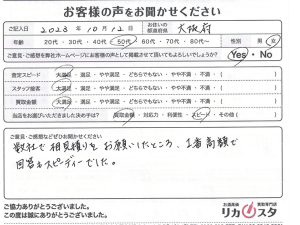 お客様の声をお聞かせください
ご記入日 2023年10月12日 お住いの都道府県 大阪府
年齢 20代・30代・40代・50代・60代・70代・80代〜 性別 男・女
ご意見・ご感想を弊社ホームページにお客様の声として掲載させて頂いてもよろしいでしょうか? Yes・No
査定スピード 大満足・満足・やや満足・どちらでもない・やや不満・不満
スタッフ接客 大満足・満足・やや満足・どちらでもない・やや不満・不満
買取金額 大満足・満足・やや満足・どちらでもない・やや不満・不満
当店をお選びいただきました決め手は? 買取金額・対応力・利便性・スピード・その他( )
ご意見・ご感想などぜひお聞かせください。
数社で相見積りをお願いしたところ、1番高額で
回答もスピーディーでした。
ご協力ありがとうございました。
この度は誠にありがとうございました。
お酒高価買取専門店
リカスタ